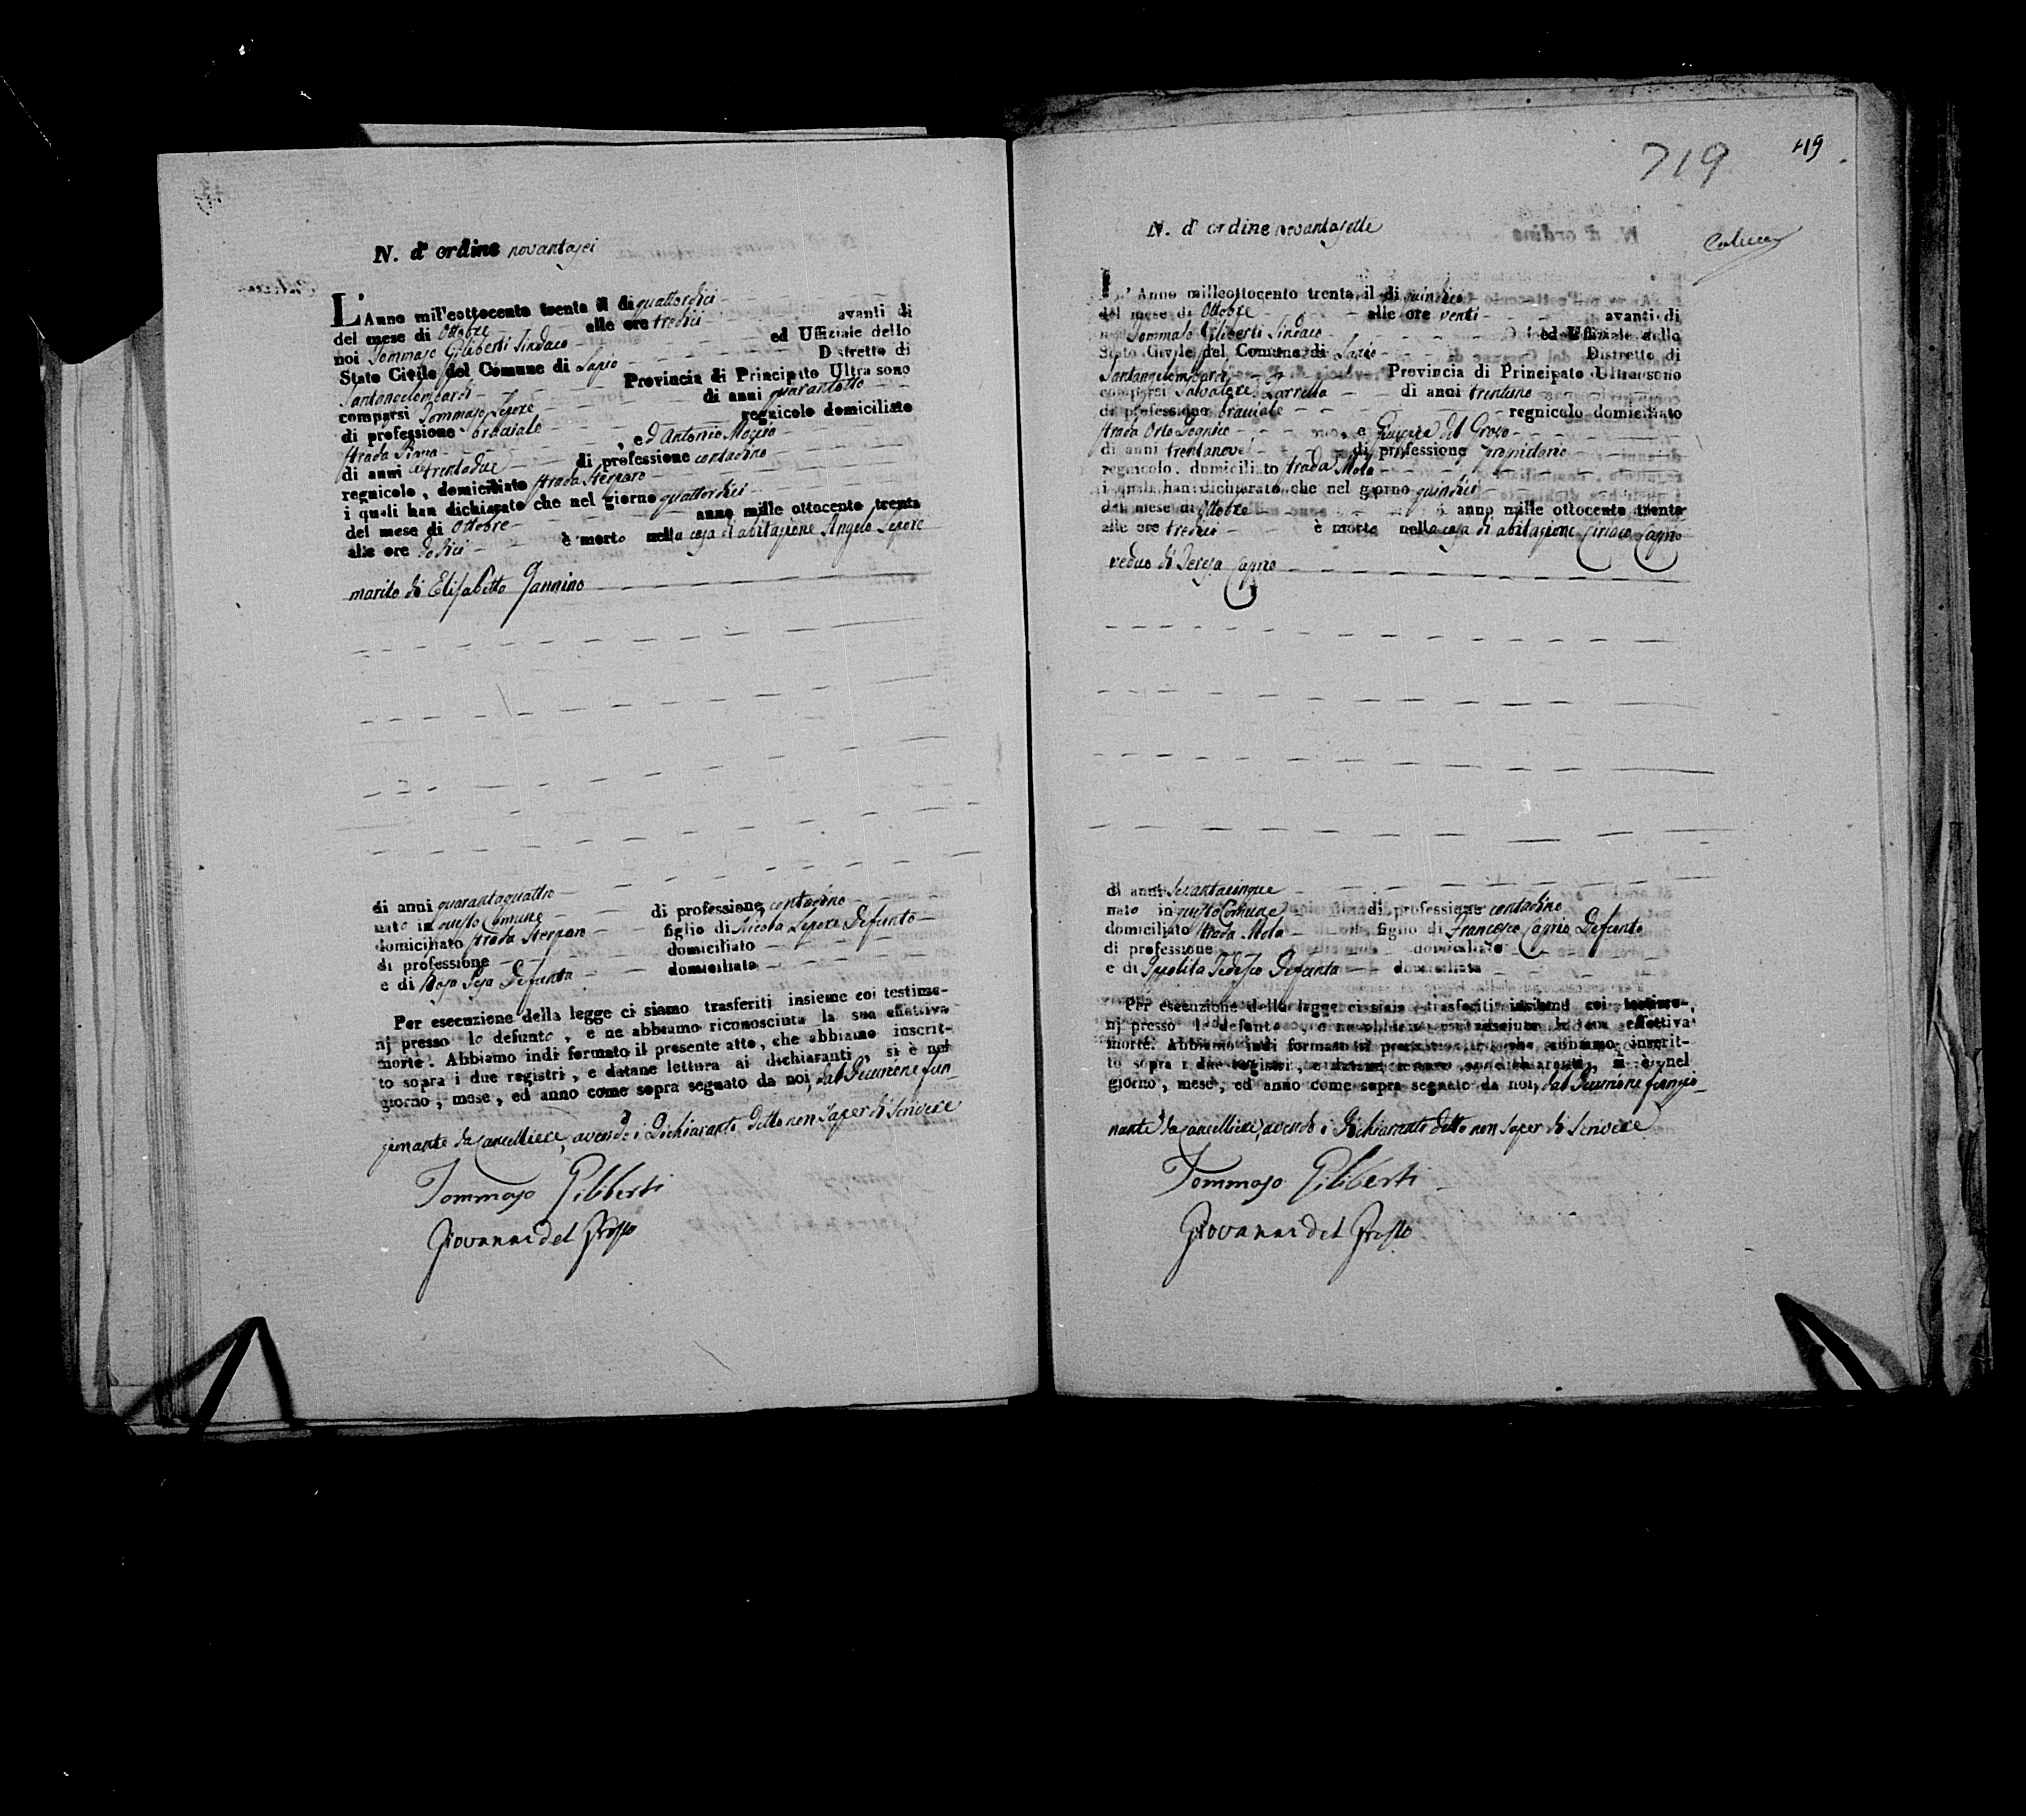 N. d' ordine novantasei
L'Anno mill'eottocento trenta il di quattordici
del mese di Ottobre alle ore tredici avanti di
noi Tommaso Giliberti Sindaco ed Uffiziale dello
Stato Civile del Comune di Lapio D stretto di
Santangelombardi Provincia di Principato Ultra sono
comparsi Tommaso Lepore di anni quarantotto
di professione bracciale regnicolo domiciliato
strada Piana , ed Antonio
di anni trentadue di professione contadino
regnicolo , domiciliato strada Sterparo
i quali han dichiarato che nel giorno quattordici
del mese di Ottobre anno mille ottocento trenta
alle ore dodici è morto nella casa d'abitazione Angelo Lepore
marito di Elisabetta Iannino
di anni quarantaquattro
nato in questo Comune di professione contadino
domiciliato strada Sterparo figlio di Nicola Lepore Defunto
di professione domiciliato
e di Rosa Defunta domiciliata
Per esecuzione della legge ci siamo trasferiti insieme coi testimo-
nj presso lo defunto , e ne abbiamo riconosciuta la sua effettiva
morte. Abbiamo indi formato il presente atto, che abbiamo inscrit-
to sopra i due registri , e datane lettura ai dichiaranti , si è nel
giorno , mese , ed anno come sopra segnato da noi, dal Decurione fun
zionante da Cancelliere, avendo i Dichiaranti detto non saper di scrivere
Tommaso Giliberti
Giovanni del Grosso
719
119
N. d' ordine novantasette
L' Anno milleottocento trenta, il di quindici
del mese di Ottobre alle ore venti avanti di
noi Tommaso Giliberti Sindaco ed Uffiziale dello
Stato Civile del Comune di Lapio Distretto di
Santangelombardi Provincia di Principato Ultra sono
comparsi Salvatore Carrella di anni trentuno
di professione bracciale regnicolo domiciliato
strada Orto , e del Grosso
di anni trentanove di professione proprietario
regnicolo , domiciliato strada Mola
i quali han dichiarato che nel giorno quindici
del mese di Ottobre anno mille ottocento trenta
alle ore tredici è morto nella casa di abitazione Ciriaco Cagno
veduo di Teresa Cagno
di anni settantacinque
nato in questo Comune di professione contadino
domiciliato strada Mola figlio di Francesco Cagno Defunto
di professione domiciliato
e di Ippolita Tedesco Defunta domiciliata
Per esecuzione della legge ci siamo trasferiti insieme coi testimo-
nj presso lo defunto , e ne abbiamo riconosciuta la sua effettiva
morte. Abbiamo indi formato il presente atto, che abbiamo inscrit-
to sopra i due registri , e datane lettura ai dichiaranti, si è nel
giorno , mese , ed anno come sopra segnato da noi, dal Decurione funzio-
nante da Cancelliere, avendo i Dichiaranti detto non saper di scrivere
Tommaso Giliberti
Giovanni del Grosso